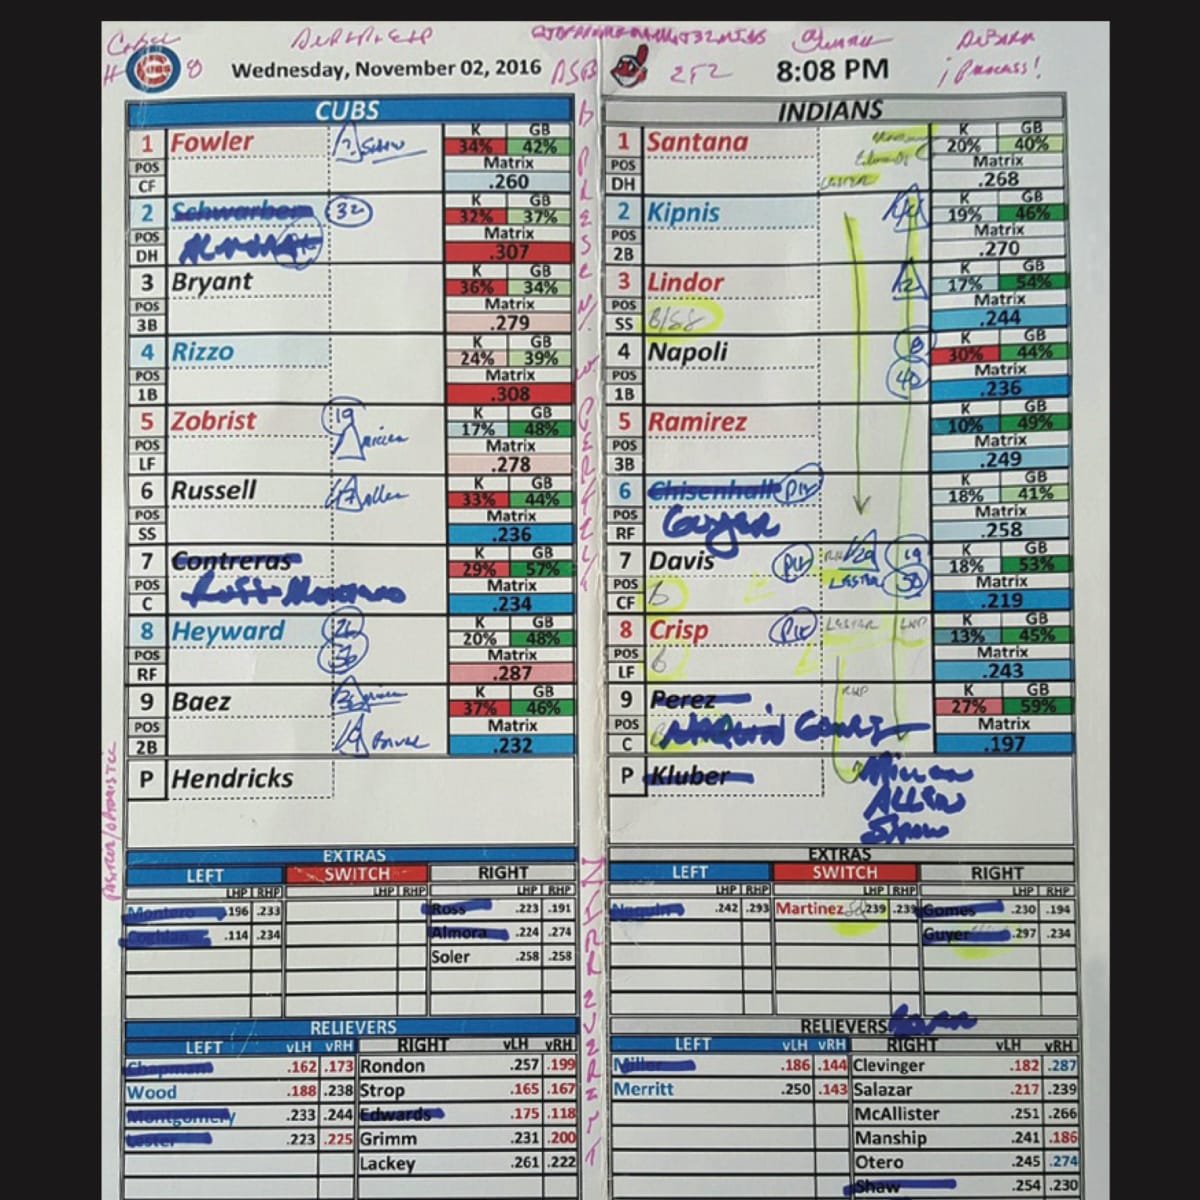 Wednesday, November 02, 2016
8:08 PM
2F2
¡ Process!
CUBS
1 Fowler K GB
34% 42%
POS Matrix
CF .260
2 Schwarber 32 K GB
32% 37%
POS Matrix
DH .307
3 Bryant K GB
36% 34%
POS Matrix
3B .279
4 Rizzo K GB
24% 39%
POS Matrix
1B .308
5 Zobrist 19 K GB
17% 48%
POS Matrix
LF .278
6 Russell Allen K GB
33% 44%
POS Matrix
SS .236
7 Contreras K GB
29% 57%
POS Matrix
C .234
8 Heyward K GB
20% 48%
POS Matrix
RF .287
9 Baez K GB
37% 46%
POS Matrix
2B .232
P Hendricks
EXTRAS
LEFT SWITCH RIGHT
LHP RHP LHP RHP LHP RHP
Montero .196 .233 Ross .223 .191
Coghlan .114 .234 Almora .224 .274
Soler .258 .258
RELIEVERS
LEFT vLH vRH RIGHT vLH vRH
Chapman .162 .173 Rondon .257 .199
Wood .188 .238 Strop .165 .167
Montgomery .233 .244 Edwards .175 .118
Lester .223 .225 Grimm .231 .200
Lackey .261 .222
INDIANS
1 Santana K GB
20% 40%
POS Matrix
DH LESTER .268
2 Kipnis K GB
19% 46%
POS Matrix
2B .270
3 Lindor K GB
17% 54%
POS Matrix
SS B/SS .244
4 Napoli 8 K GB
30% 44%
POS 40 Matrix
1B .236
5 Ramirez K GB
10% 49%
POS Matrix
3B .249
6 Chisenhall K GB
18% 41%
POS Guyer Matrix
RF .258
7 Davis 29 19 K GB
18% 53%
POS LESTER Matrix
CF B .219
8 Crisp LESTER RHP K GB
13% 45%
POS Matrix
LF B .243
9 Perez RHP K GB
27% 59%
POS NAQUIN GOMES Matrix
C .197
P Kluber Miller
ALLEN
SHAW
EXTRAS
LEFT SWITCH RIGHT
LHP RHP LHP RHP LHP RHP
Naquin .242 .293 Martinez .239 .239 Gomes .230 .194
Guyer .297 .234
RELIEVERS
LEFT vLH vRH RIGHT vLH vRH
Miller .186 .144 Clevinger .182 .287
Merritt .250 .143 Salazar .217 .239
McAllister .251 .266
Manship .241 .186
Otero .245 .274
Shaw .254 .230